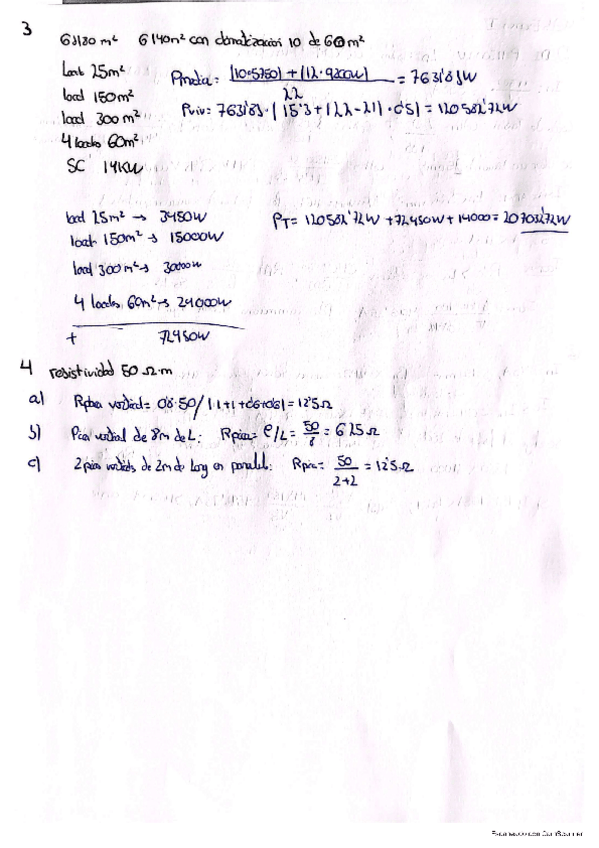 3
6 180 m² 6 140m² con climatización 10 de 60m²
Local 25m²
local 150m²
local 300m²
4 locales 60m²
SC 14KW
Pmedia = (10·5750) + (12·9200W) / 22 = 7631'81W
Pviv = 7631'81·(15'3+(22-21)·0'5) = 120582'72W
local 25m² → 3450W
local 150m² → 15000W
local 300m² → 30000W
4 locales 60m² → 24000W
+ 72450W
PT = 120582'72W + 72450W + 14000 = 207032'72W
4 resistividad 50 Ω·m
a) Rplaca vertical = 0'8·50/(1+1+0'6+0'6) = 12'5Ω
b) Pica vertical de 8m de L: Rpica = ρ/L = 50/8 = 6'25Ω
c) 2 picas verticales de 2m de long en paralel: Rpica = 50/2+2 = 12'5Ω